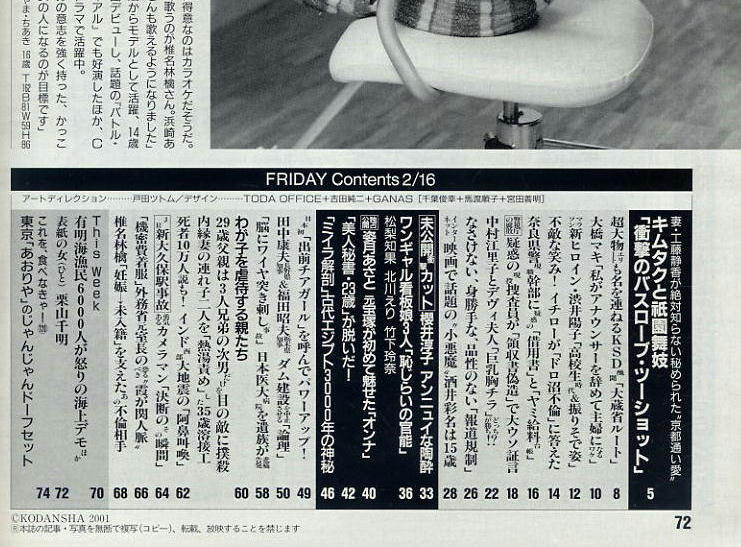 得意なのはカラオケだそうだ。
歌うのが椎名林檎さん。浜崎あ
んも歌えるようになりました」
からモデルとして活躍、14歳
デビューし、話題の『バトル・
アル』でも好演したほか、C
ラマで活躍中。
の意志を強く持った、かっこ
の人になるのが目標です」
やま・ちあき 16歳 T162B81W59H86
FRIDAY Contents 2/16
アートディレクション………戸田ツトム／デザイン………TODA OFFICE＋吉田純二＋GANAS［千葉俊幸＋馬渡順子＋宮田善明］
妻・工藤静香が絶対知らない秘められた“京都通い愛”
キムタクと祇園舞妓
「衝撃のバスローブ・ツーショット」 5
超大物エリも名を連ねるKSD「大蔵省ルート」 8
大橋マキ「私がアナウンサーを辞めて主婦になったワケ」 10
新ヒロイン・渋井陽子「高校生時代&振りそで姿」 12
不敵な笑み!イチローが「ドロ沼不倫」に答えた 14
奈良県警幹部に「疑惑の借用書」と「ヤミ給料帳」 16
疑惑の捜査員が「領収書偽造」で大ウソ証言 18
中村江里子とデヴィ夫人「巨乳胸チラ」 22
なさけない、身勝手な、品性のない「報道規制」 26
映画で話題の“小悪魔”酒井彩名は15歳 28
未公開カット 櫻井淳子 アンニュイな陶酔 33
ワンギャル看板娘3人「恥じらいの官能」 36
松梨知果 北川えり 竹下玲奈
姿月あさと 元宝塚が初めて魅せた「オンナ」 40
「美人秘書・23歳」が脱いだ! 42
「ミイラ解剖」古代エジプト3000年の神秘 46
日本初「出前チアガール」を呼んでパワーアップ! 49
田中康夫&福田昭夫 ダム建設「論理」 50
「脳にワイヤ突き刺し」事故 日本医大を遺族が 58
わが子を虐待する親たち 60
29歳父親は3人兄弟の次男を目の敵に撲殺
内縁妻の連れ子二人を「熱湯責め」した35歳溶接工
死者10万人説も!インド西部大地震の「阿鼻叫喚」 62
新大久保駅事故 カメラマン「決断の瞬間」 64
「機密費着服」外務省元室長の“霞が関人脈” 66
椎名林檎「妊娠→未入籍」を支えたあの不倫相手 68
This Week 70
有明海漁民6000人が怒りの海上デモ ほか
表紙の女(ひと) 栗山千明 72
これを、食べなきゃ!
東京「あおりや」のじゃんじゃんドーフセット 74
©KODANSHA 2001
®本誌の記事・写真を無断で複写(コピー)、転載、放映することを禁じます
72